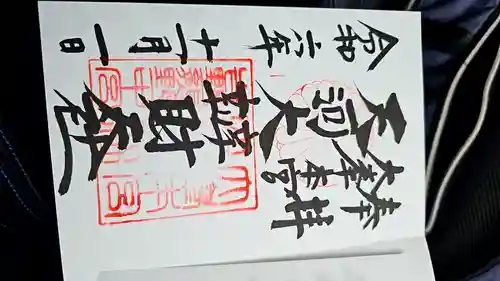 奉拝
大峯本宮
天河大辨財天
令和六年十一月一日